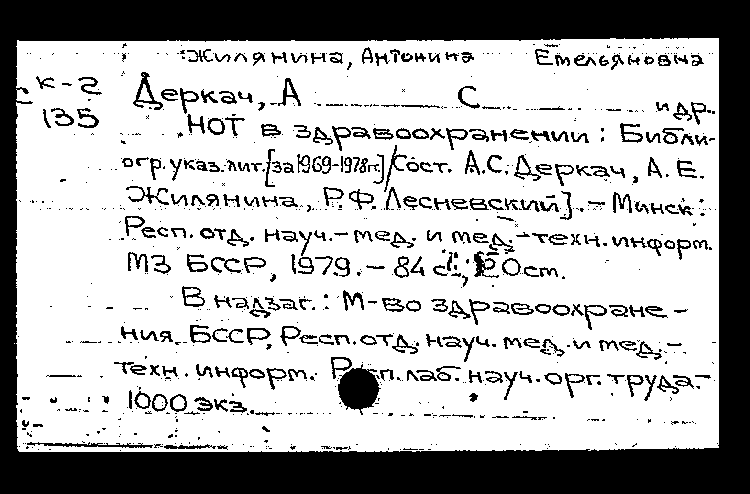 Жилянина, Антонина Емельяновна
К-2 Деркач, А С и др.
135 НОТ в здравоохранении: Библи-
огр. указ. лит. [за 1969-1978гг.] / [Сост. А.С. Деркач, А.Е.
Жилянина, Р.Ф. Лесневский]. - Минск:
Респ. отд. науч.-мед. и мед.-техн. информ.
МЗ БССР, 1979. - 84 с.; 20 см.
В надзаг.: М-во здравоохране-
ния БССР, Респ. отд. науч. мед. и мед.-
техн. информ. Респ. лаб. науч. орг. труда. -
1000 экз.